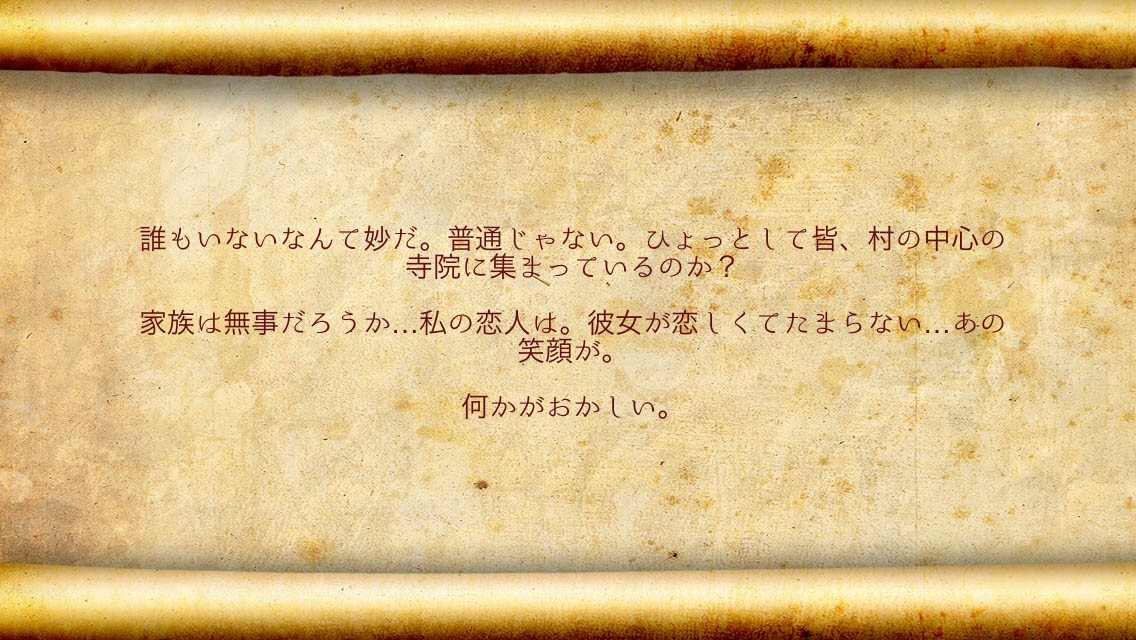 誰もいないなんて妙だ。普通じゃない。ひょっとして皆、村の中心の
寺院に集まっているのか？
家族は無事だろうか…私の恋人は。彼女が恋しくてたまらない…あの
笑顔が。
何かがおかしい。